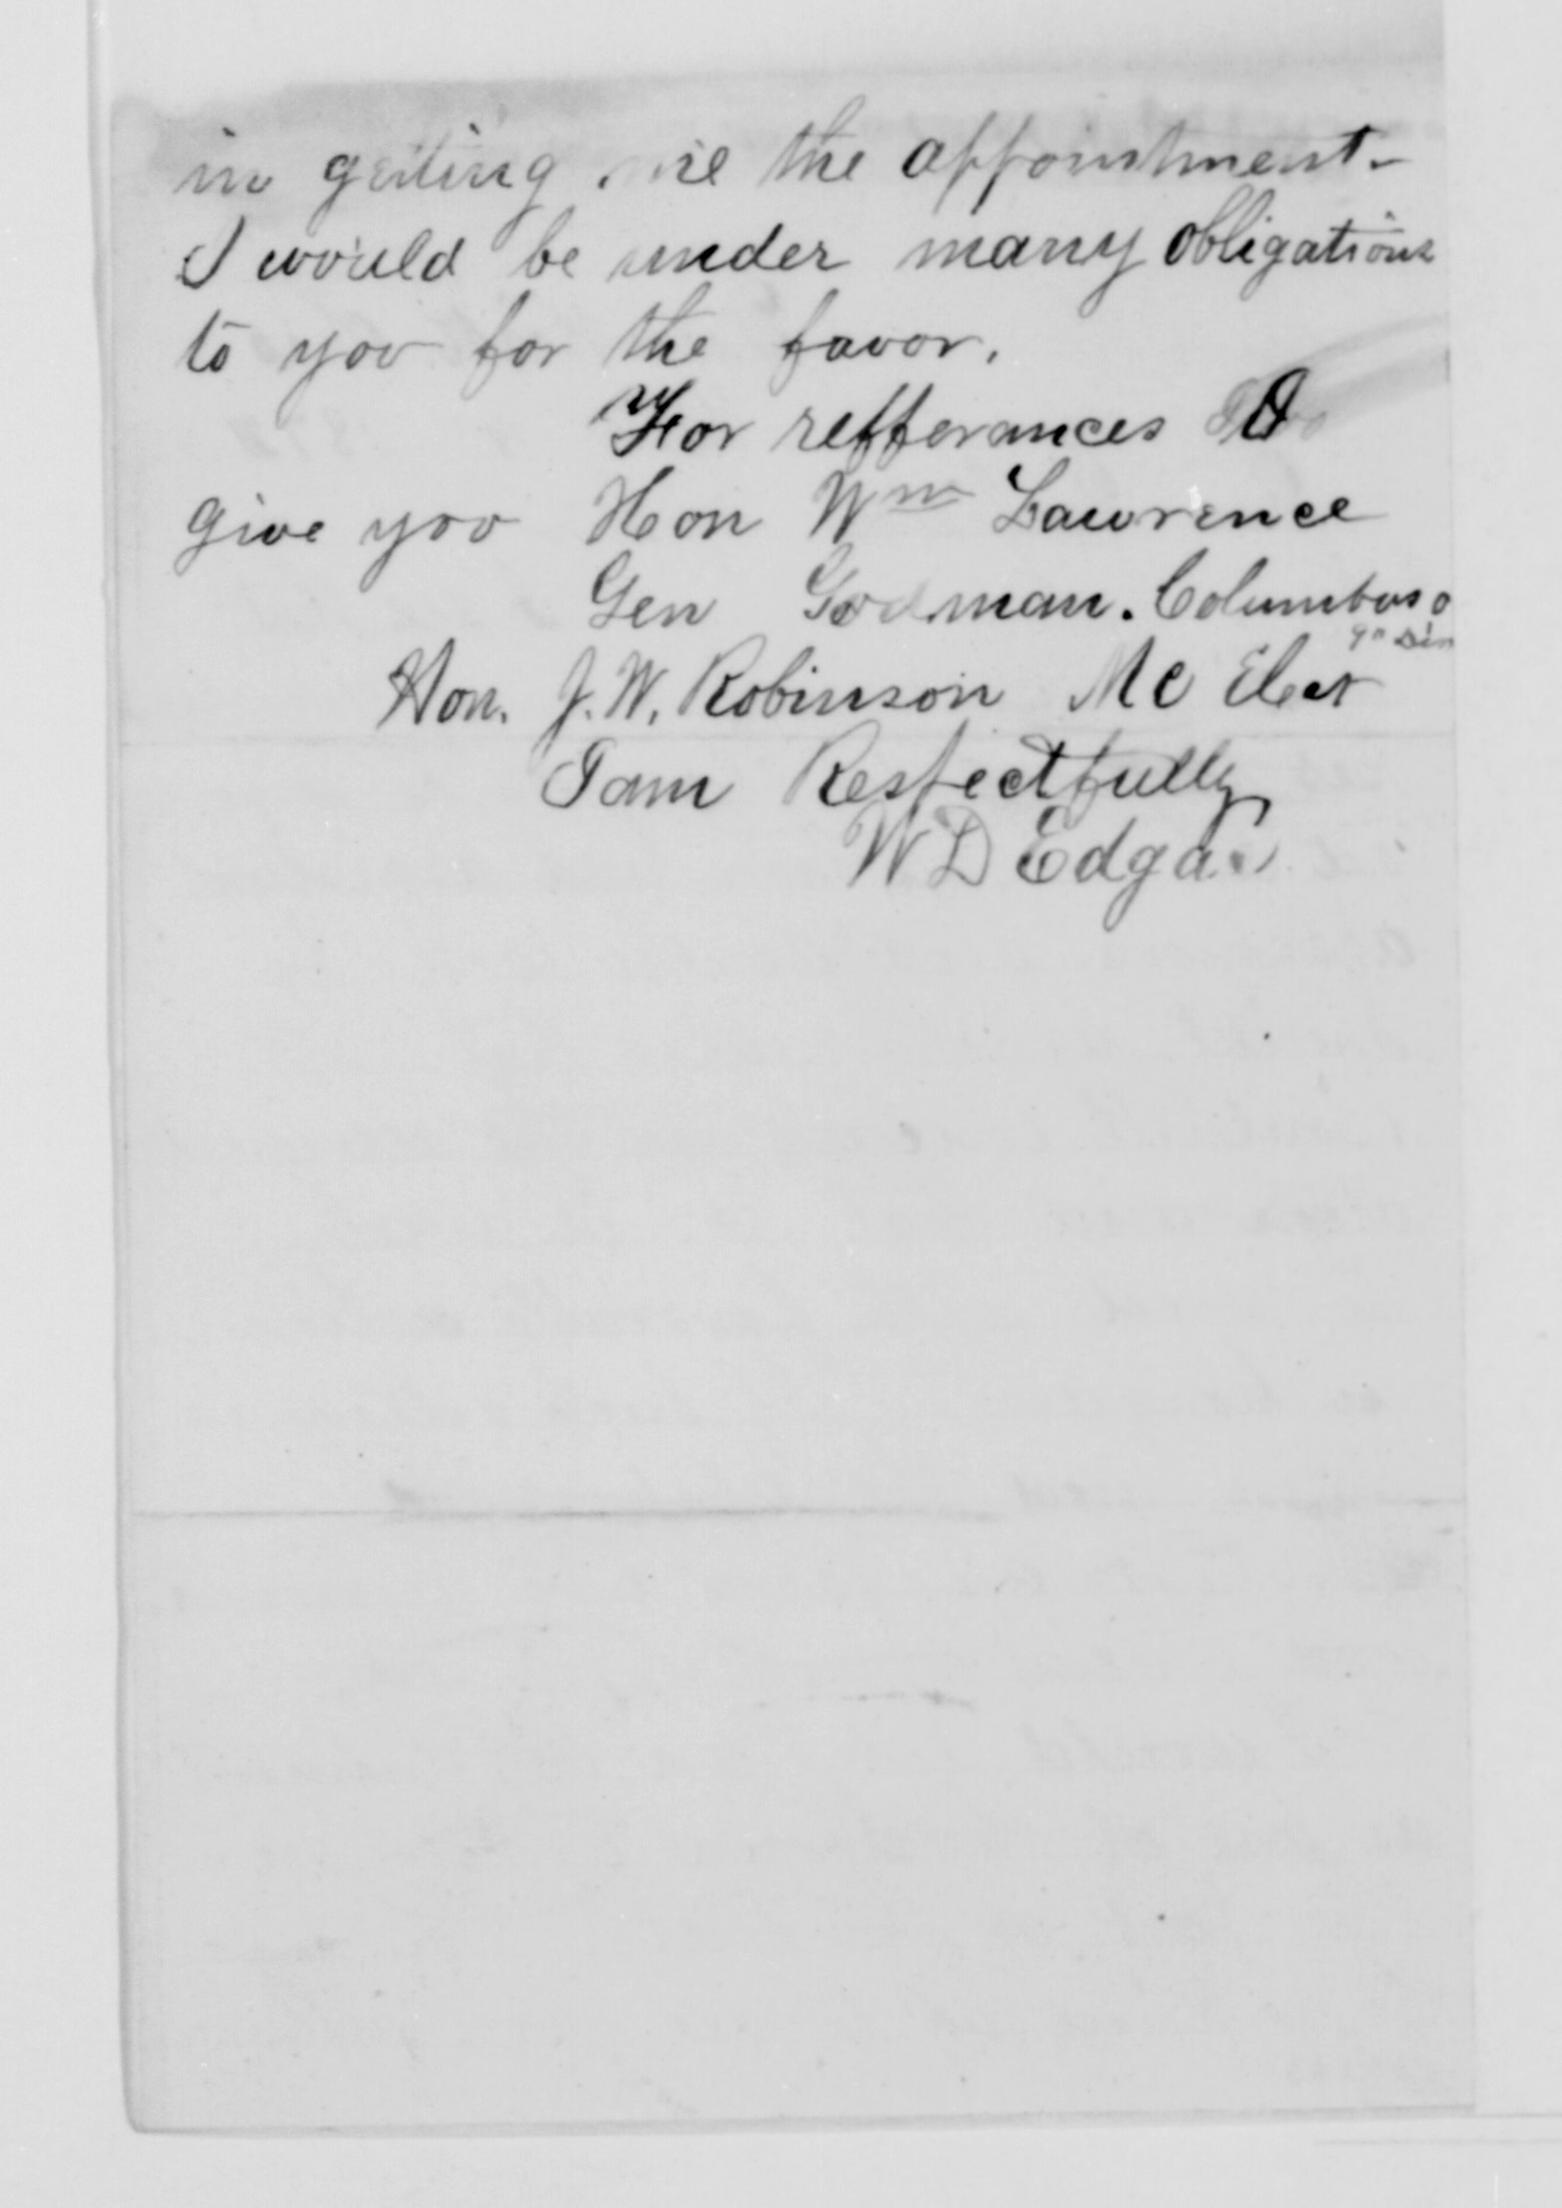 in getting me the appointment-
I would be under many obligations
to you for the favor.
For refferances I
give you Hon Wm Lawrence
Gen Godman. Columbus O
Hon. J. W. Robinson M C Elect
I am Respectfully
W D Edgar